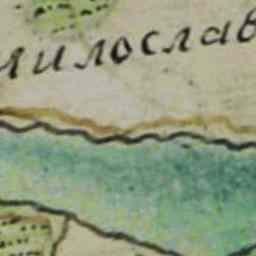 Милослав